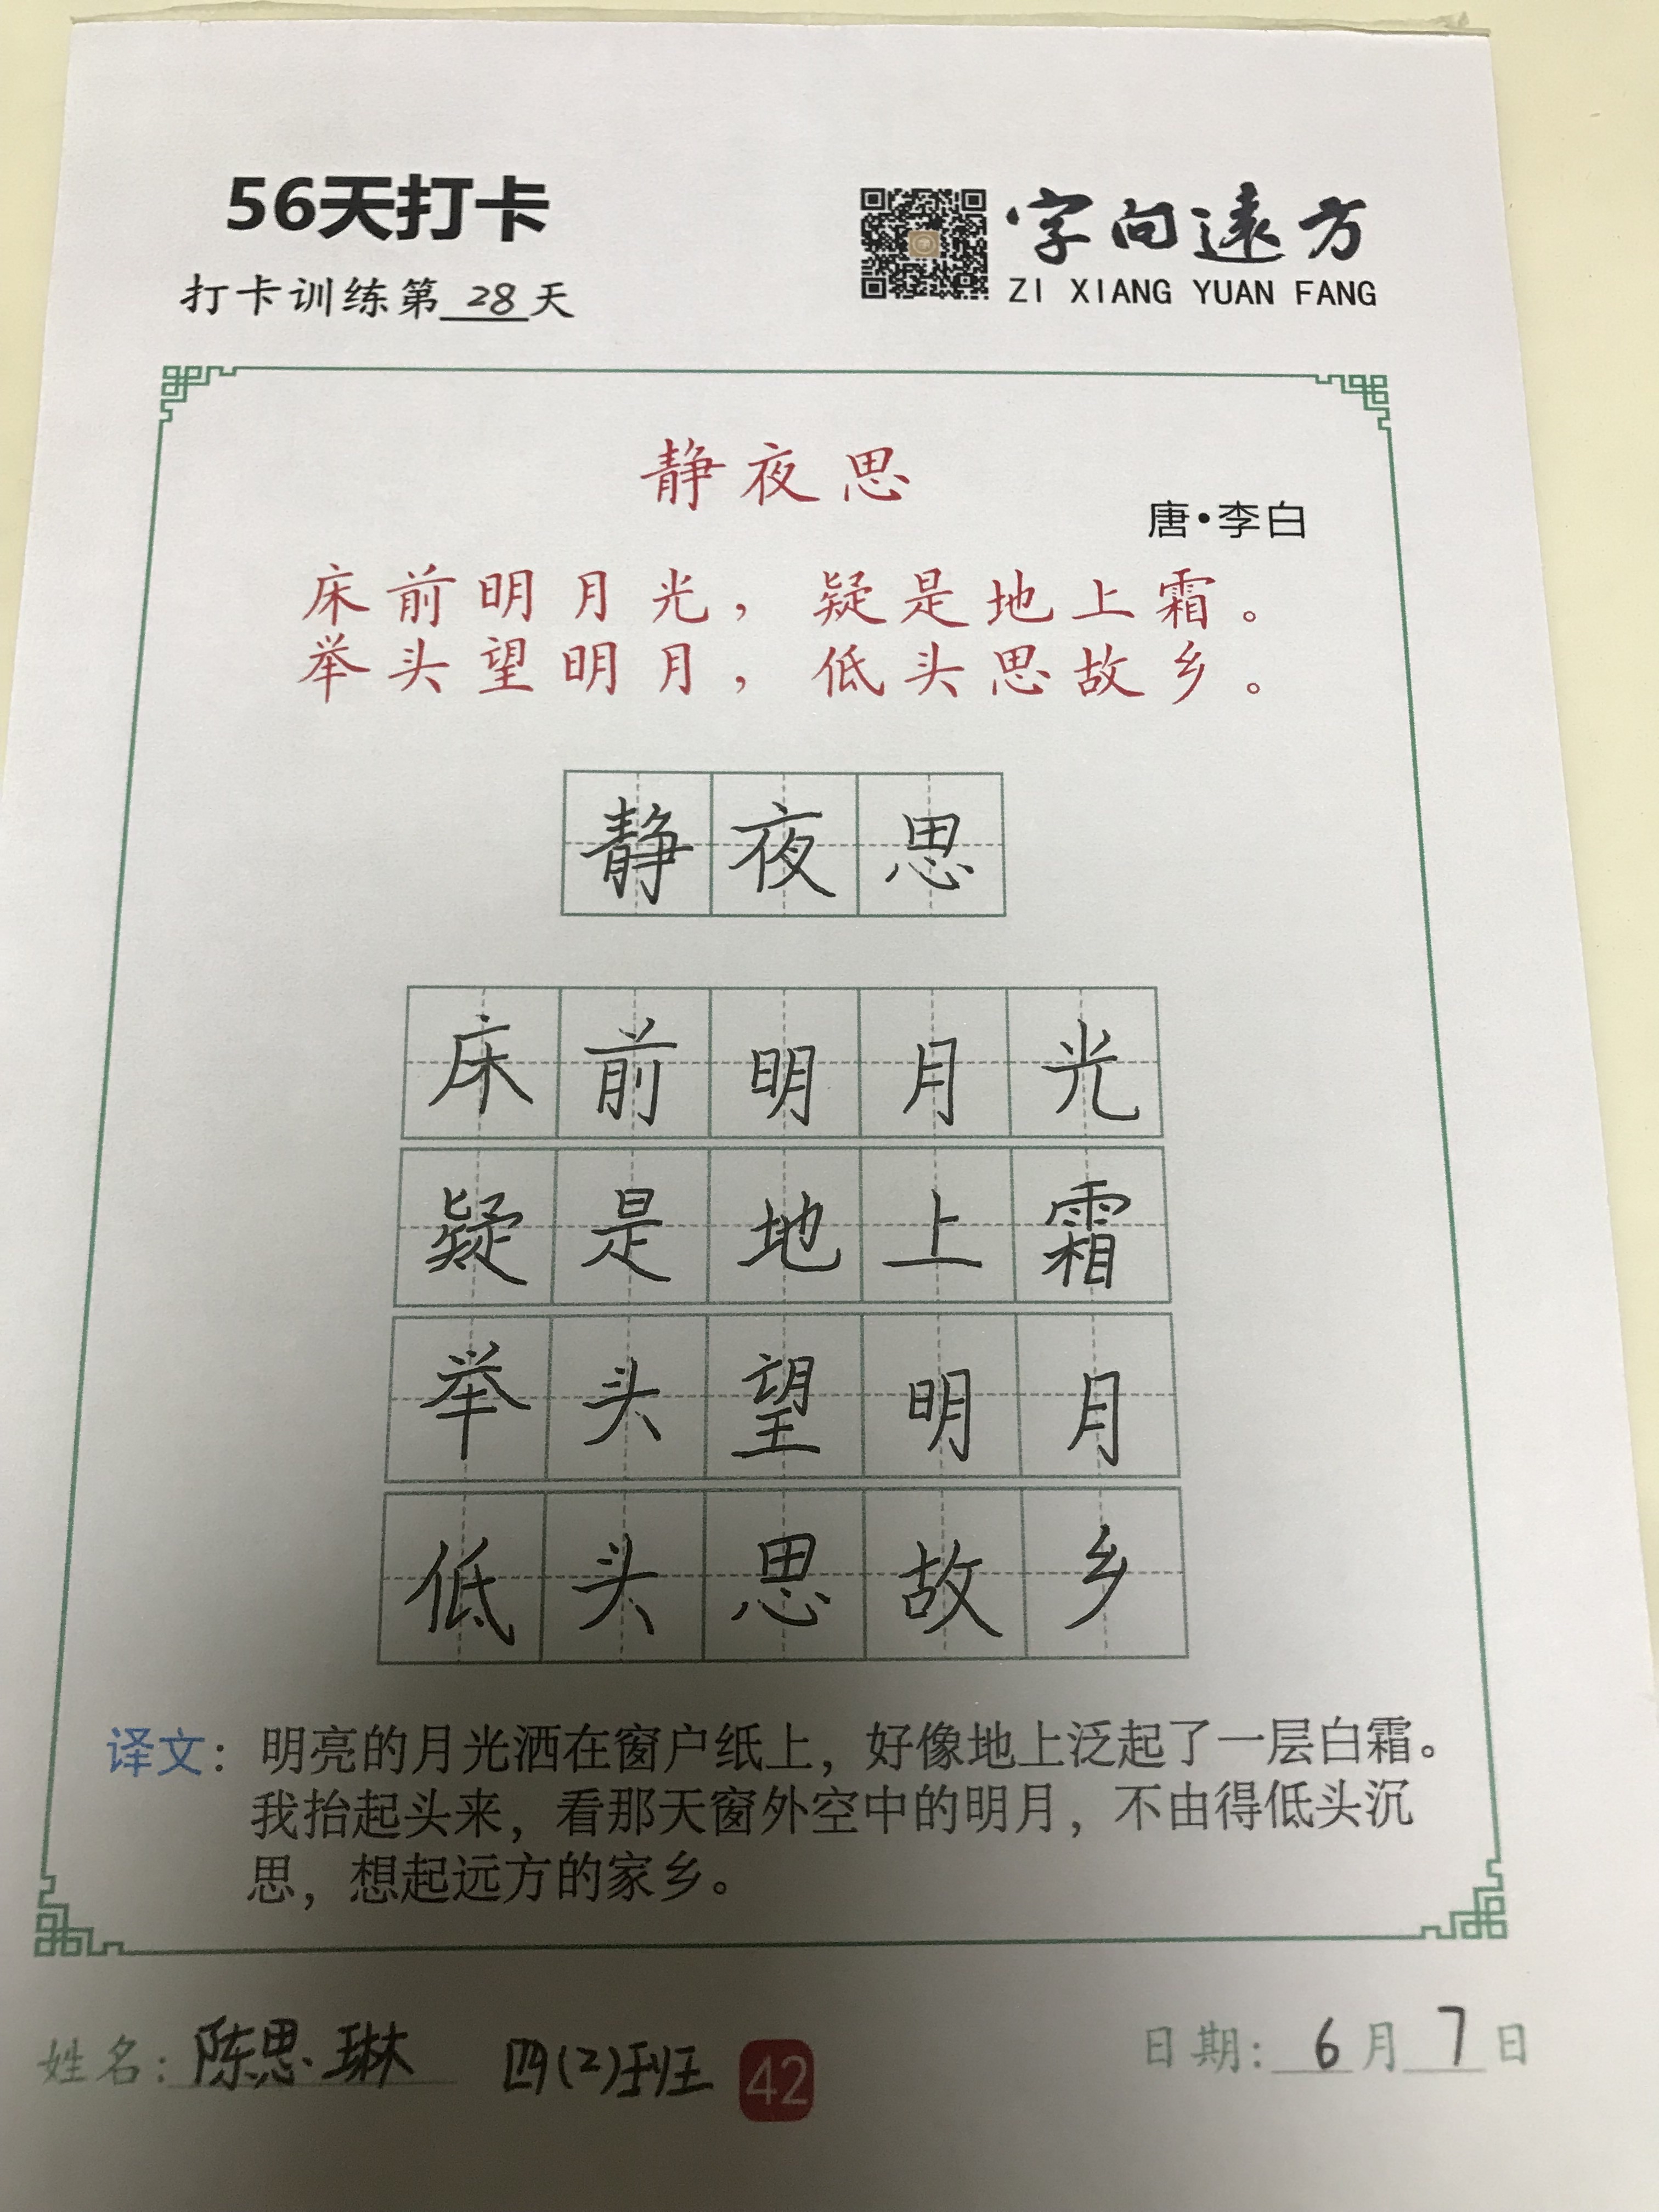 56天打卡
字向遠方
ZI XIANG YUAN FANG
打卡训练第28天
静夜思
唐·李白
床前明月光，疑是地上霜。
举头望明月，低头思故乡。
静夜思
床前明月光
疑是地上霜
举头望明月
低头思故乡
译文：明亮的月光洒在窗户纸上，好像地上泛起了一层白霜。
我抬起头来，看那天窗外空中的明月，不由得低头沉
思，想起远方的家乡。
姓名：陈思琳 四(2)班 42 日期：6月7日